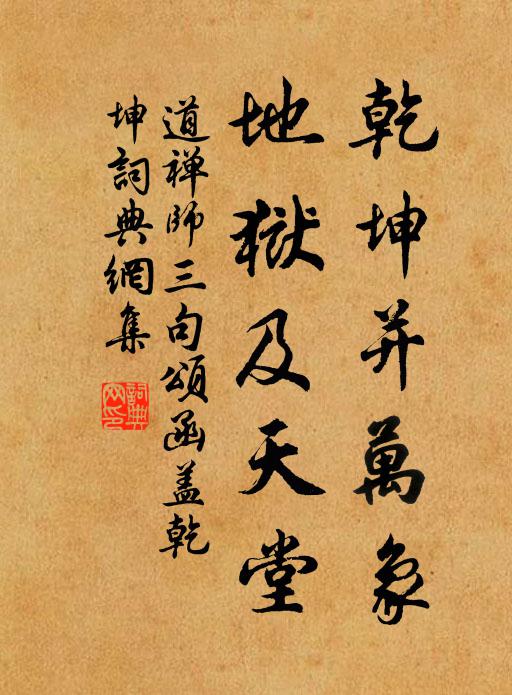 乾坤并萬象
地獄及天堂
道禅師三句頌函盖乾
坤詞典網集
詞典
网印